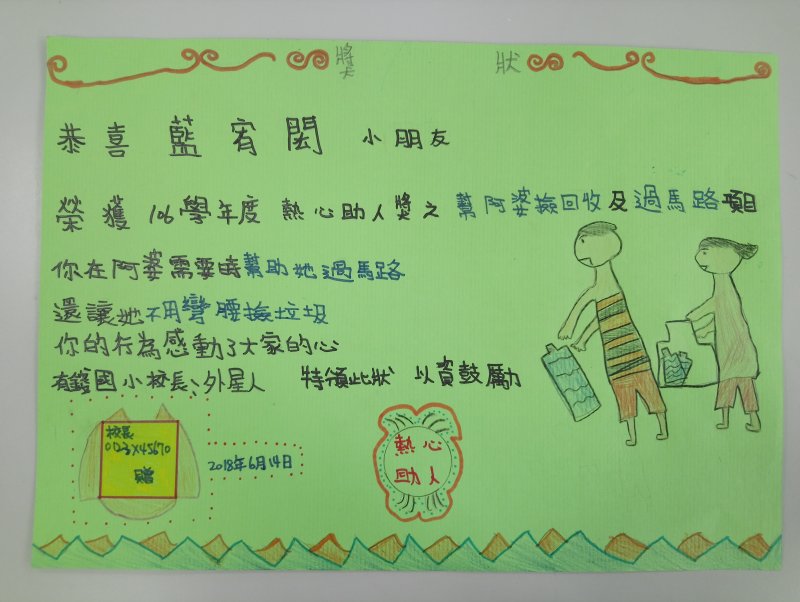 獎 狀
恭喜 藍宥閎 小朋友
榮獲 106學年度 熱心助人獎之 幫阿婆撿回收及過馬路項目
你在阿婆需要時幫助她過馬路
還讓她不用彎腰撿垃圾
你的行為感動了大家的心
有錢國小校長、外星人 特頒此狀 以資鼓勵
校長
0123X45670
贈
2018年6月14日
熱心
助人